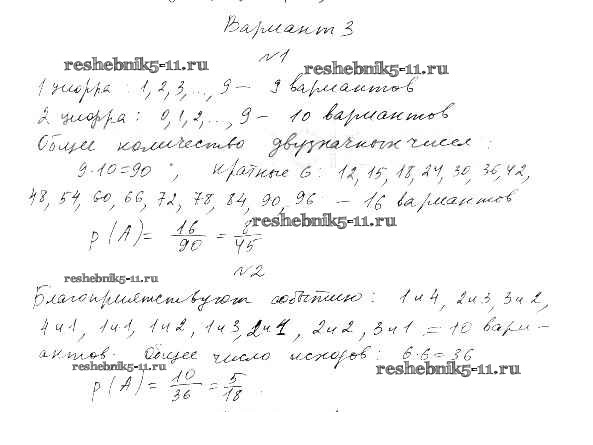 Вариант 3
№1
reshebnik5-11.ru reshebnik5-11.ru
1 цифра: 1, 2, 3, ..., 9 – 9 вариантов
2 цифра: 0, 1, 2, ..., 9 – 10 вариантов
Общее количество двузначных чисел:
9·10=90; кратные 6: 12, 15, 18, 24, 30, 36, 42,
48, 54, 60, 66, 72, 78, 84, 90, 96 – 16 вариантов
p(A)= 16/90 = 8/45 reshebnik5-11.ru
№2
reshebnik5-11.ru
Благоприятствуют событию: 1и4, 2и3, 3и2,
4и1, 1и1, 1и2, 1и3, 2и1, 2и2, 3и1 = 10 вари-
антов. Общее число исходов: 6·6=36
reshebnik5-11.ru reshebnik5-11.ru
p(A)= 10/36 = 5/18.